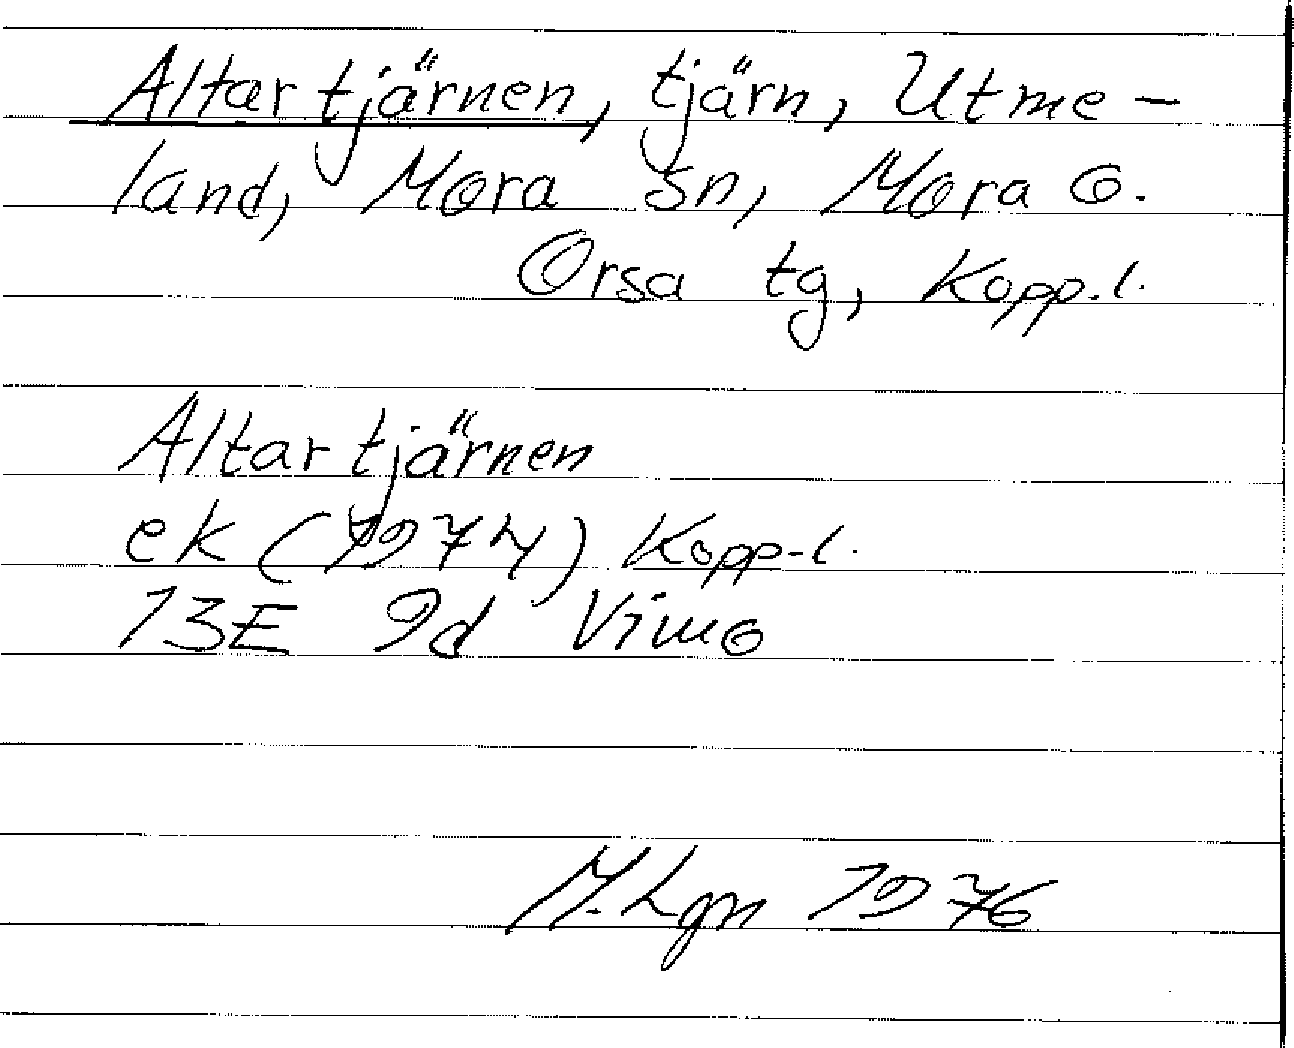 Altartjärnen, tjärn, Utme-
land, Mora sn, Mora o.
Orsa tg, Kopp.l.
Altartjärnen
ek (1974) Kopp.l.
13E 9d Vimo
M. Lgn 1976